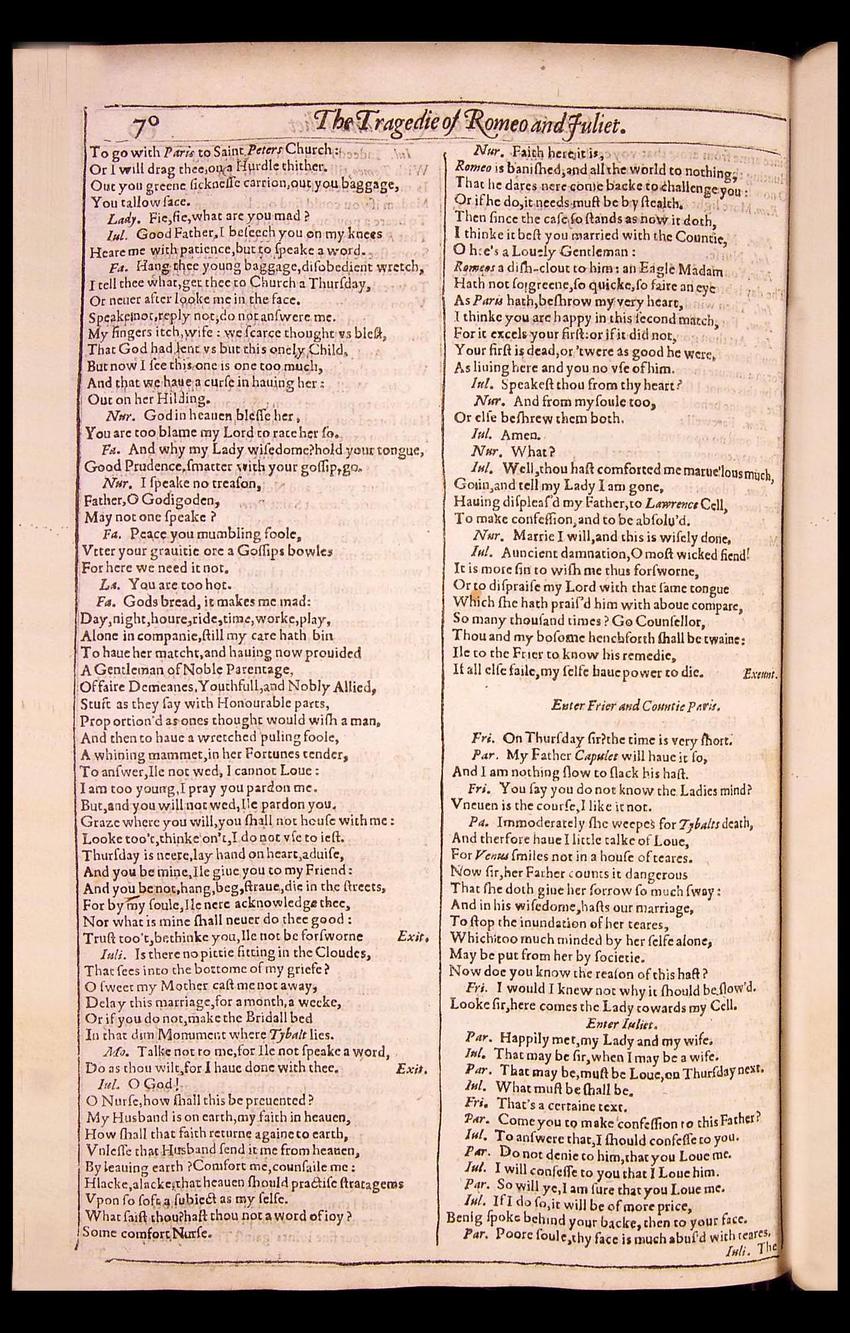 70
The Tragedie of Romeo and Juliet.
To go with Paris to Saint Peters Church:
Or I will drag thee, on a Hurdle thither.
Out you greene sicknesse carrion, out you baggage,
You tallow face.
Lady. Fie, fie, what are you mad?
Iul. Good Father, I beseech you on my knees
Heare me with patience, but to speake a word.
Fa. Hang thee young baggage, disobedient wretch,
I tell thee what, get thee to Church a Thursday,
Or neuer after looke me in the face.
Speake not, reply not, do not answere me.
My fingers itch, wife: we scarce thought vs blest,
That God had lent vs but this onely Child,
But now I see this one is one too much,
And that we haue a curse in hauing her:
Out on her Hilding.
Nur. God in heauen blesse her,
You are too blame my Lord to rate her so.
Fa. And why my Lady wisedome? hold your tongue,
Good Prudence, smatter with your gossip, go.
Nur. I speake no treason,
Father, O Godigoden,
May not one speake?
Fa. Peace you mumbling foole,
Vtter your grauitie ore a Gossips bowles
For here we need it not.
La. You are too hot.
Fa. Gods bread, it makes me mad:
Day, night, houre, ride, time, worke, play,
Alone in companie, still my care hath bin
To haue her matcht, and hauing now prouided
A Gentleman of Noble Parentage,
Of faire Demeanes, Youthfull, and Nobly Allied,
Stuft as they say with Honourable parts,
Proportion'd as ones thought would wish a man,
And then to haue a wretched puling foole,
A whining mammet, in her Fortunes tender,
To answer, Ile not wed, I cannot Loue:
I am too young, I pray you pardon me.
But, and you will not wed, Ile pardon you.
Graze where you will, you shall not house with me:
Looke too't, thinke on't, I do not vse to iest.
Thursday is neere, lay hand on heart, aduise,
And you be mine, Ile giue you to my Friend:
And you be not, hang, beg, straue, die in the streets,
For by my soule, Ile nere acknowledge thee,
Nor what is mine shall neuer do thee good:
Trust too't, bethinke you, Ile not be forsworne Exit.
Iuli. Is there no pittie sitting in the Cloudes,
That sees into the bottome of my griefe?
O sweet my Mother cast me not away,
Delay this marriage, for a month, a weeke,
Or if you do not, make the Bridall bed
In that dim Monument where Tybalt lies.
Mo. Talke not to me, for Ile not speake a word,
Do as thou wilt, for I haue done with thee. Exit.
Iul. O God!
O Nurse, how shall this be preuented?
My Husband is on earth, my faith in heauen,
How shall that faith returne againe to earth,
Vnlesse that Husband send it me from heauen,
By leauing earth? Comfort me, counsaile me:
Hlacke, alacke, that heauen should practise stratagems
Vpon so soft a subiect as my selfe.
What saist thou? hast thou not a word of ioy?
Some comfort Nurse.
Nur. Faith here it is,
Romeo is banished, and all the world to nothing,
That he dares nere come backe to challenge you:
Or if he do, it needs must be by stealth.
Then since the case so stands as now it doth,
I thinke it best you married with the Countie,
O hee's a Louely Gentleman:
Romeos a dish-clout to him: an Eagle Madam
Hath not so greene, so quicke, so faire an eye
As Paris hath, beshrow my very heart,
I thinke you are happy in this second match,
For it excels your first: or if it did not,
Your first is dead, or 'twere as good he were,
As liuing here and you no vse of him.
Iul. Speakest thou from thy heart?
Nur. And from my soule too,
Or else beshrew them both.
Iul. Amen.
Nur. What?
Iul. Well, thou hast comforted me marue'lous much,
Go in, and tell my Lady I am gone,
Hauing displeas'd my Father, to Lawrence Cell,
To make confession, and to be absolu'd.
Nur. Marrie I will, and this is wisely done,
Iul. Auncient damnation, O most wicked fiend!
It is more sin to wish me thus forsworne,
Or to dispraise my Lord with that same tongue
Which she hath prais'd him with aboue compare,
So many thousand times? Go Counsellor,
Thou and my bosome henchforth shall be twaine:
Ile to the Frier to know his remedie,
If all else faile, my selfe haue power to die. Exeunt.
Enter Frier and Countie Paris.
Fri. On Thursday sir? the time is very short.
Par. My Father Capulet will haue it so,
And I am nothing slow to slack his hast.
Fri. You say you do not know the Ladies mind?
Vneuen is the course, I like it not.
Pa. Immoderately she weepes for Tybalts death,
And therfore haue I little talke of Loue,
For Venus smiles not in a house of teares.
Now sir, her Father counts it dangerous
That she doth giue her sorrow so much sway:
And in his wisedome, hasts our marriage,
To stop the inundation of her teares,
Which too much minded by her selfe alone,
May be put from her by societie.
Now doe you know the reason of this hast?
Fri. I would I knew not why it should be slow'd.
Looke sir, here comes the Lady towards my Cell.
Enter Iuliet.
Par. Happily met, my Lady and my wife.
Iul. That may be sir, when I may be a wife.
Par. That may be, must be Loue, on Thursday next.
Iul. What must be shall be.
Fri. That's a certaine text.
Par. Come you to make confession to this Father?
Iul. To answere that, I should confesse to you.
Par. Do not denie to him, that you Loue me.
Iul. I will confesse to you that I Loue him.
Par. So will ye, I am sure that you Loue me.
Iul. If I do so, it will be of more price,
Benig spoke behind your backe, then to your face.
Par. Poore soule, thy face is much abus'd with teares.
Iuli. The